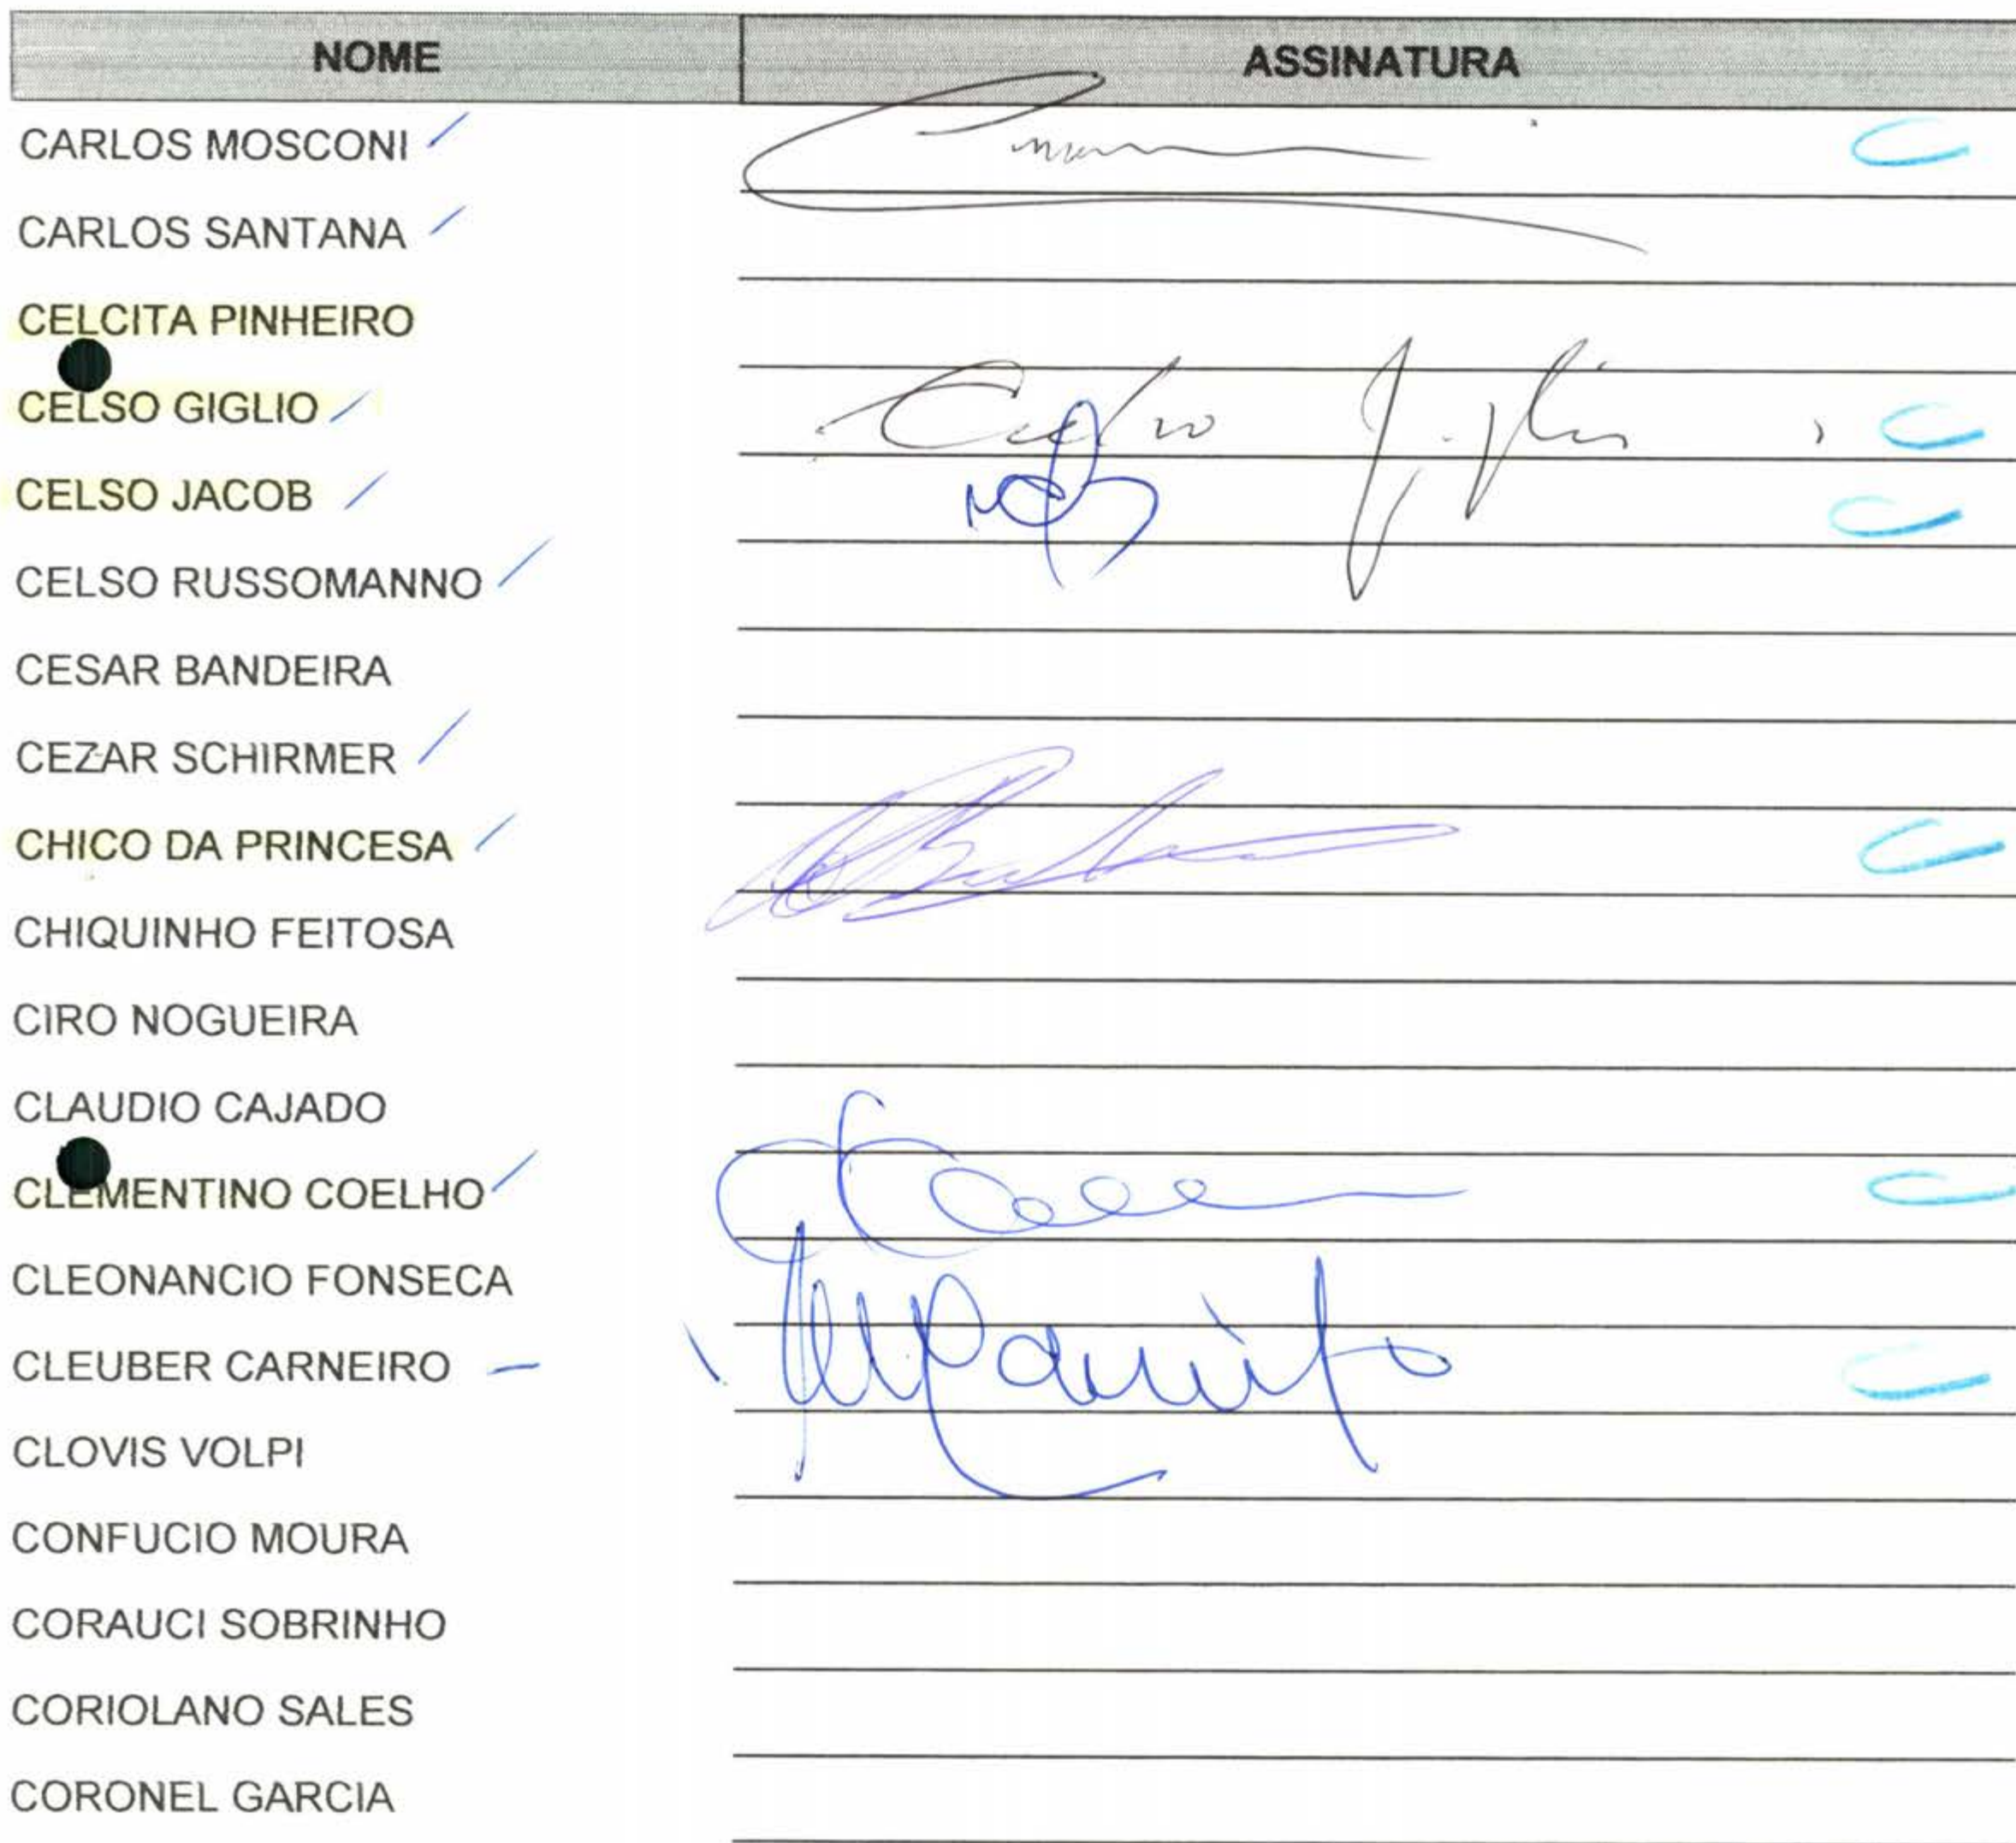 NOME ASSINATURA
CARLOS MOSCONI
CARLOS SANTANA
CELCITA PINHEIRO
CELSO GIGLIO Celso Giglio
CELSO JACOB
CELSO RUSSOMANNO
CESAR BANDEIRA
CEZAR SCHIRMER
CHICO DA PRINCESA
CHIQUINHO FEITOSA
CIRO NOGUEIRA
CLAUDIO CAJADO
CLEMENTINO COELHO
CLEONANCIO FONSECA
CLEUBER CARNEIRO
CLOVIS VOLPI
CONFUCIO MOURA
CORAUCI SOBRINHO
CORIOLANO SALES
CORONEL GARCIA